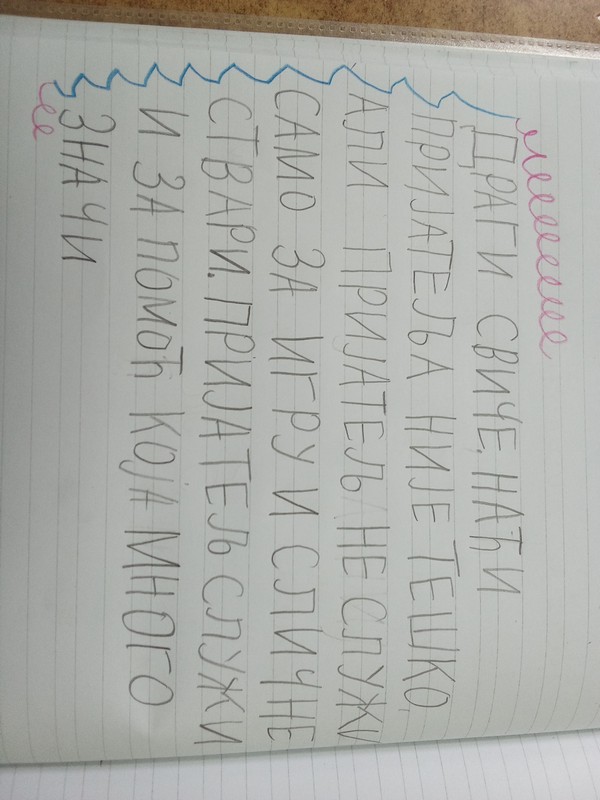 ДРАГИ СВИЧЕ, НАЂИ
ПРИЈАТЕЉА НИЈЕ ТЕШКО,
АЛИ ПРИЈАТЕЉ НЕ СЛУЖИ
САМО ЗА ИГРУ И СЛИЧНЕ
СТВАРИ. ПРИЈАТЕЉ СЛУЖИ
И ЗА ПОМОЋ КОЈА МНОГО
ЗНАЧИ